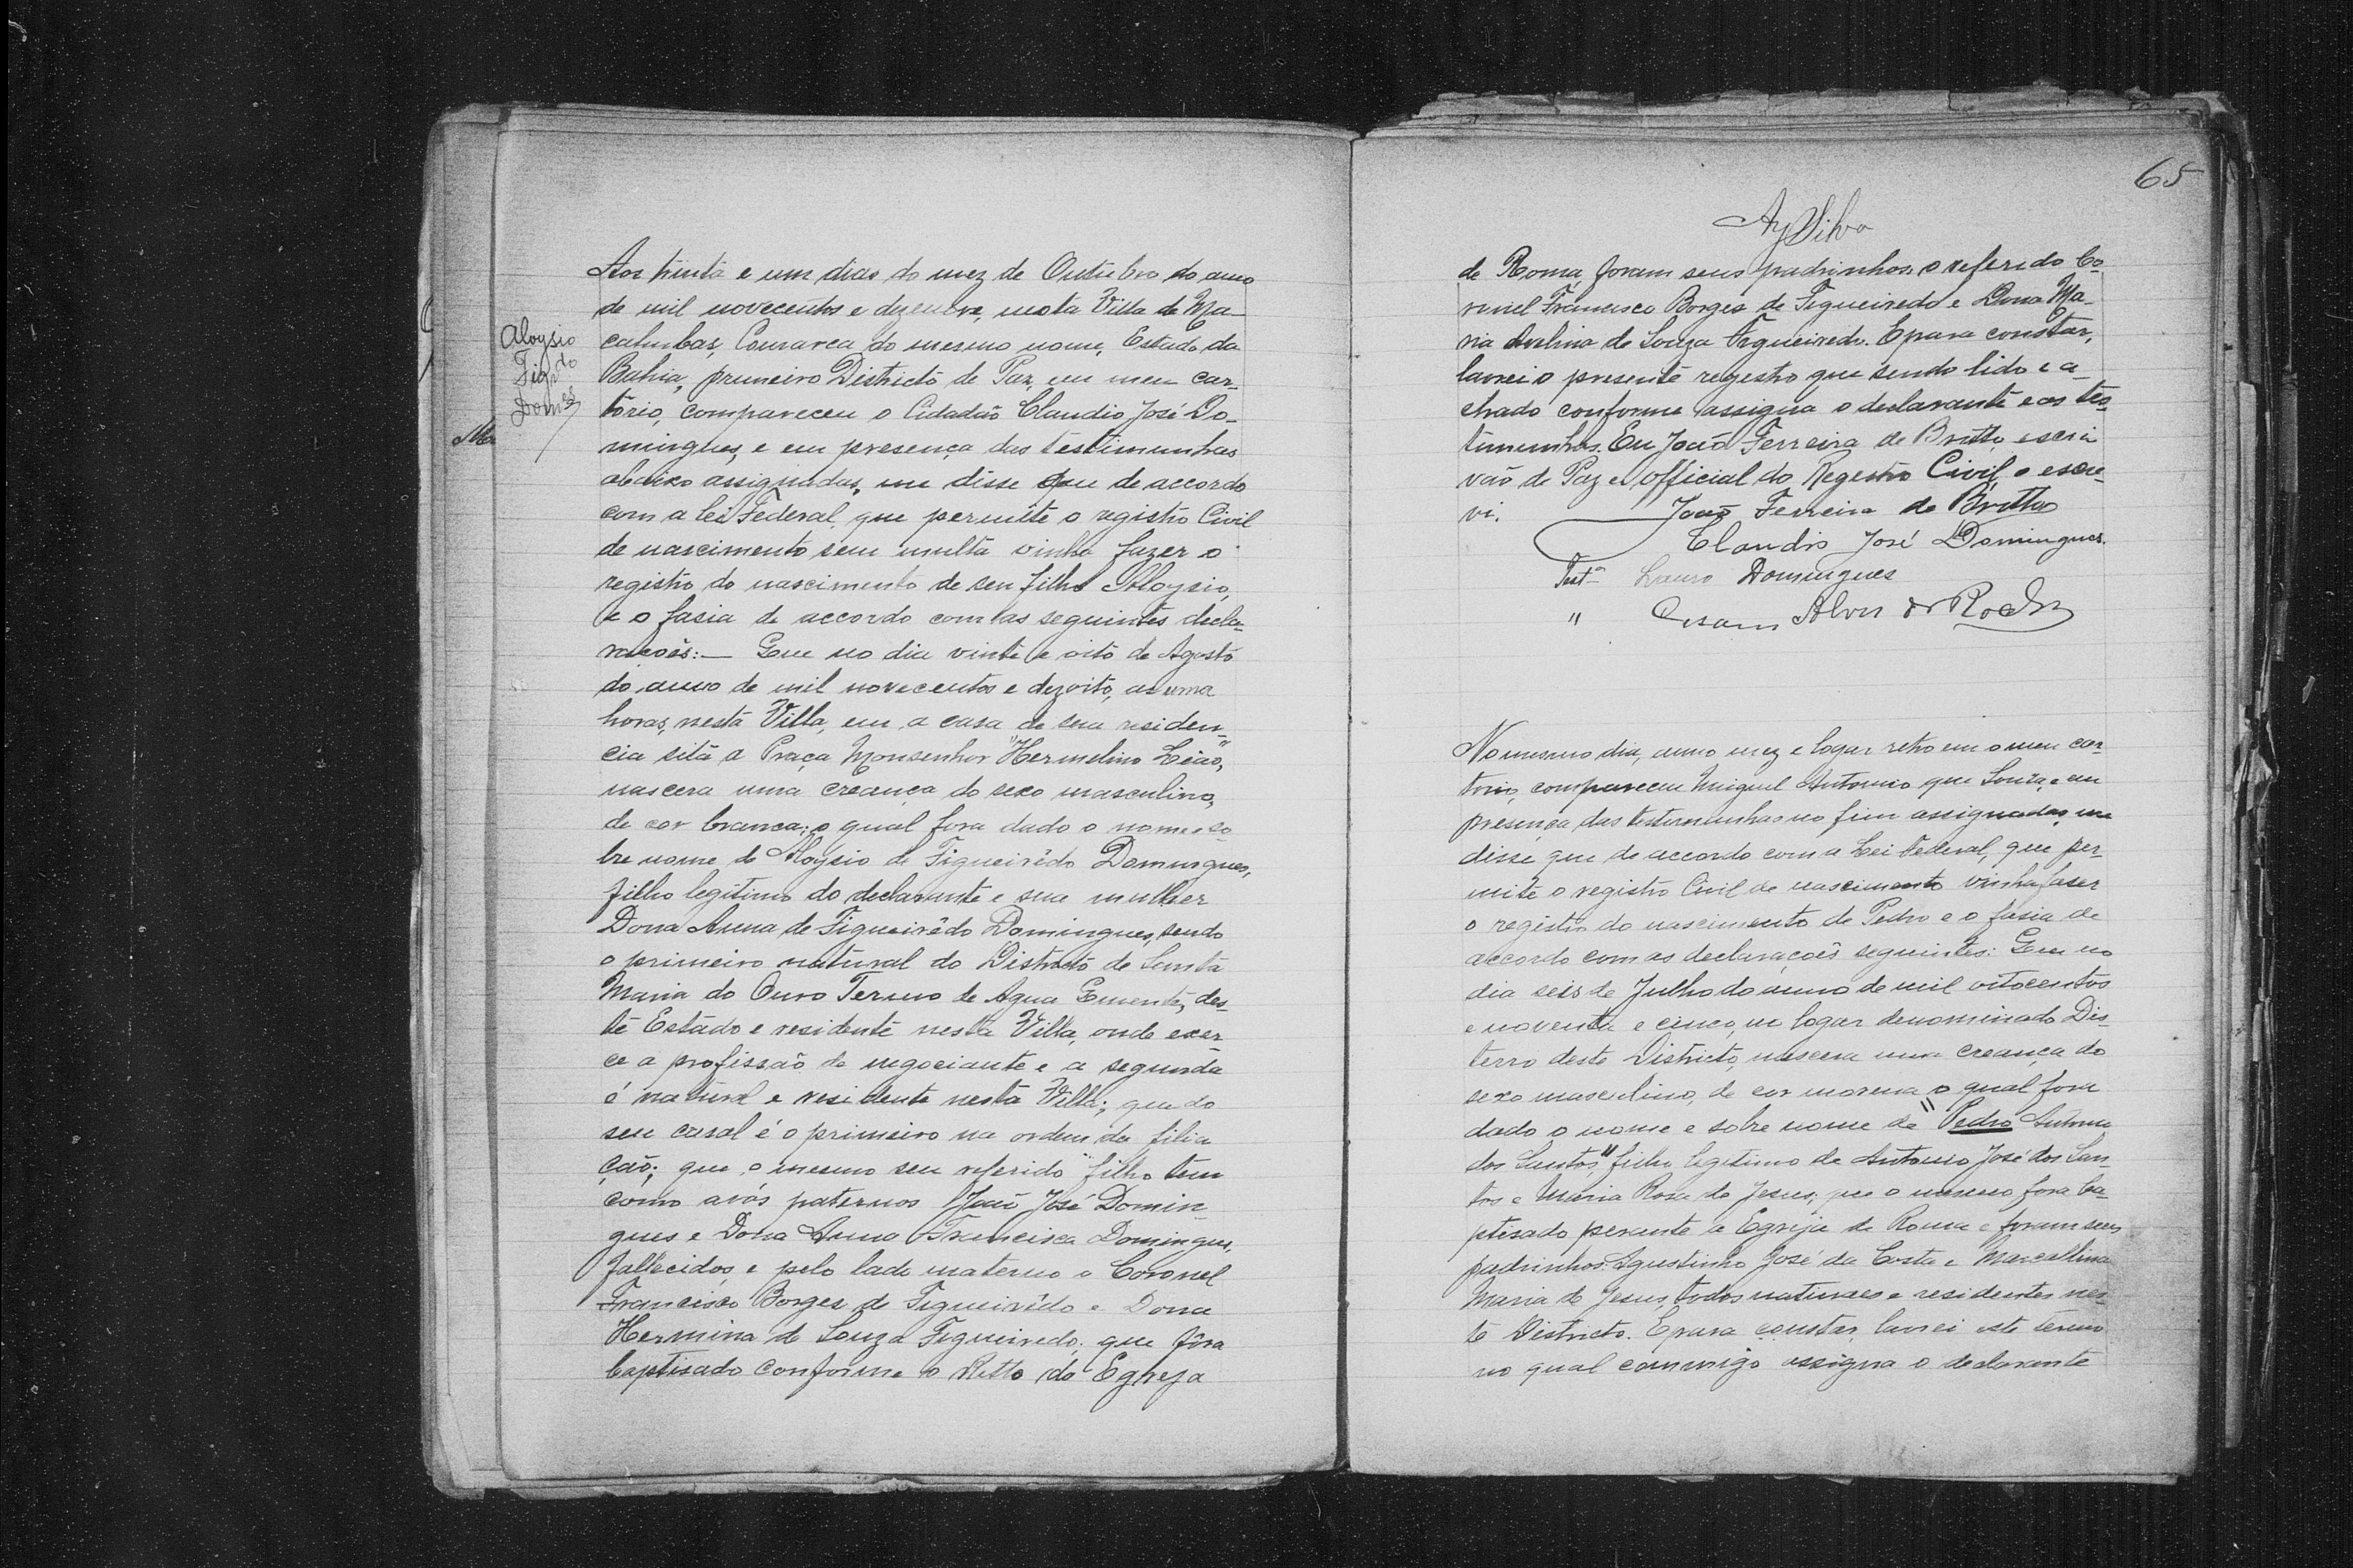 Aloysio
Figdo
Domes
Aos trinta e um dias do mez de Outubro do anno
de mil novecentos e dezenove, nesta Villa de Ma-
cahubas, Comarca do mesmo nome, Estado da
Bahia, primeiro Districto de Paz, em meu car-
torio, compareceu o Cidadão Claudio José Do-
mingues, e em presença das testimunhas
abaixo assignadas, me disse que de accordo
com a lei Federal, que permitte o registro Civil
de nascimento sem multa vinha fazer o
registro do nascimento de seu filho Aloysio,
e o fasia de accordo com as seguintes decla-
rações:— Que no dia vinte e oito de Agosto
do anno de mil novecentos e dezoito, as uma
horas, nesta Villa, em a casa de sua residen-
cia sitá a Praça Monsenhor "Hermelino Leão",
nascera uma creança do sexo masculino,
de cor branca; o qual fora dado o nome e so
bre nome de Aloysio de Figueirêdo Domingues,
filho legitimo do declarante e sua mulher
Dona Anna de Figueirêdo Domingues, sendo
o primeiro natural do Districto de Santa
Maria do Ouro Termo de Agua Quente, des-
te Estado e residente nesta Villa, onde exer-
ce a profissão de negociante e a segunda
é natural e residente nesta Villa; que do
seu casal é o primeiro na ordem da filia
ção; que o mesmo seu referido filho tem
como avós paternos João José Domin-
gues e Dona Anna Francisca Domingues,
fallecidos e pelo lado materno o Coronel
Francisco Borges de Figueirêdo e Dona
Hermina de Souza Figueiredo; que fôra
baptisado conforme o Ritto da Egreja
65
AySilva
de Roma, foram seus padrinhos o referido Co-
ronel Francisco Borges de Figueiredo e Dona Ma-
ria de Souza Figueiredo. E para constar,
lavrei o presente registro que sendo lido e a-
chado conforme assigna o declarante e as tes-
timunhas. Eu João Ferreira de Britto, escri
vão de Paz e official do Registro Civil, o escre-
vi. João Ferreira de Britto
Claudio José Domingues.
Testª Lauro Domingues
" Alves da Rocha
No mesmo dia, anno mez e logar retro em o meu car-
torio, compareceu Miguel Antonio que Souza, e em
presença das testemunhas no fim assignadas, me
disse que de accordo com a Lei Federal, que per-
mitte o registro Civil de nascimento vinha faser
o registro do nascimento de Pedro e o fasia de
accordo com as declarações seguintes: Que no
dia seis de Julho do anno de mil oitocentos
e noventa e cinco, no logar denominado Dis-
terro deste Districto, nascera uma creança do
sexo masculino, de cor morena, o qual fora
dado o nome e sobre nome de "Pedro Antonio
dos Santos," filho legitimo de Antonio José dos San-
tos e Maria Rosa de Jesus, que o mesmo fora ba-
ptisado perante a Egreja de Roma e foram seus
padrinhos: Agustinho José da Costa e Marcellina
Maria de Jesus, todos naturaes e residentes nes-
te Districto. E para constar, lavrei este termo
no qual commigo assigna o declarante